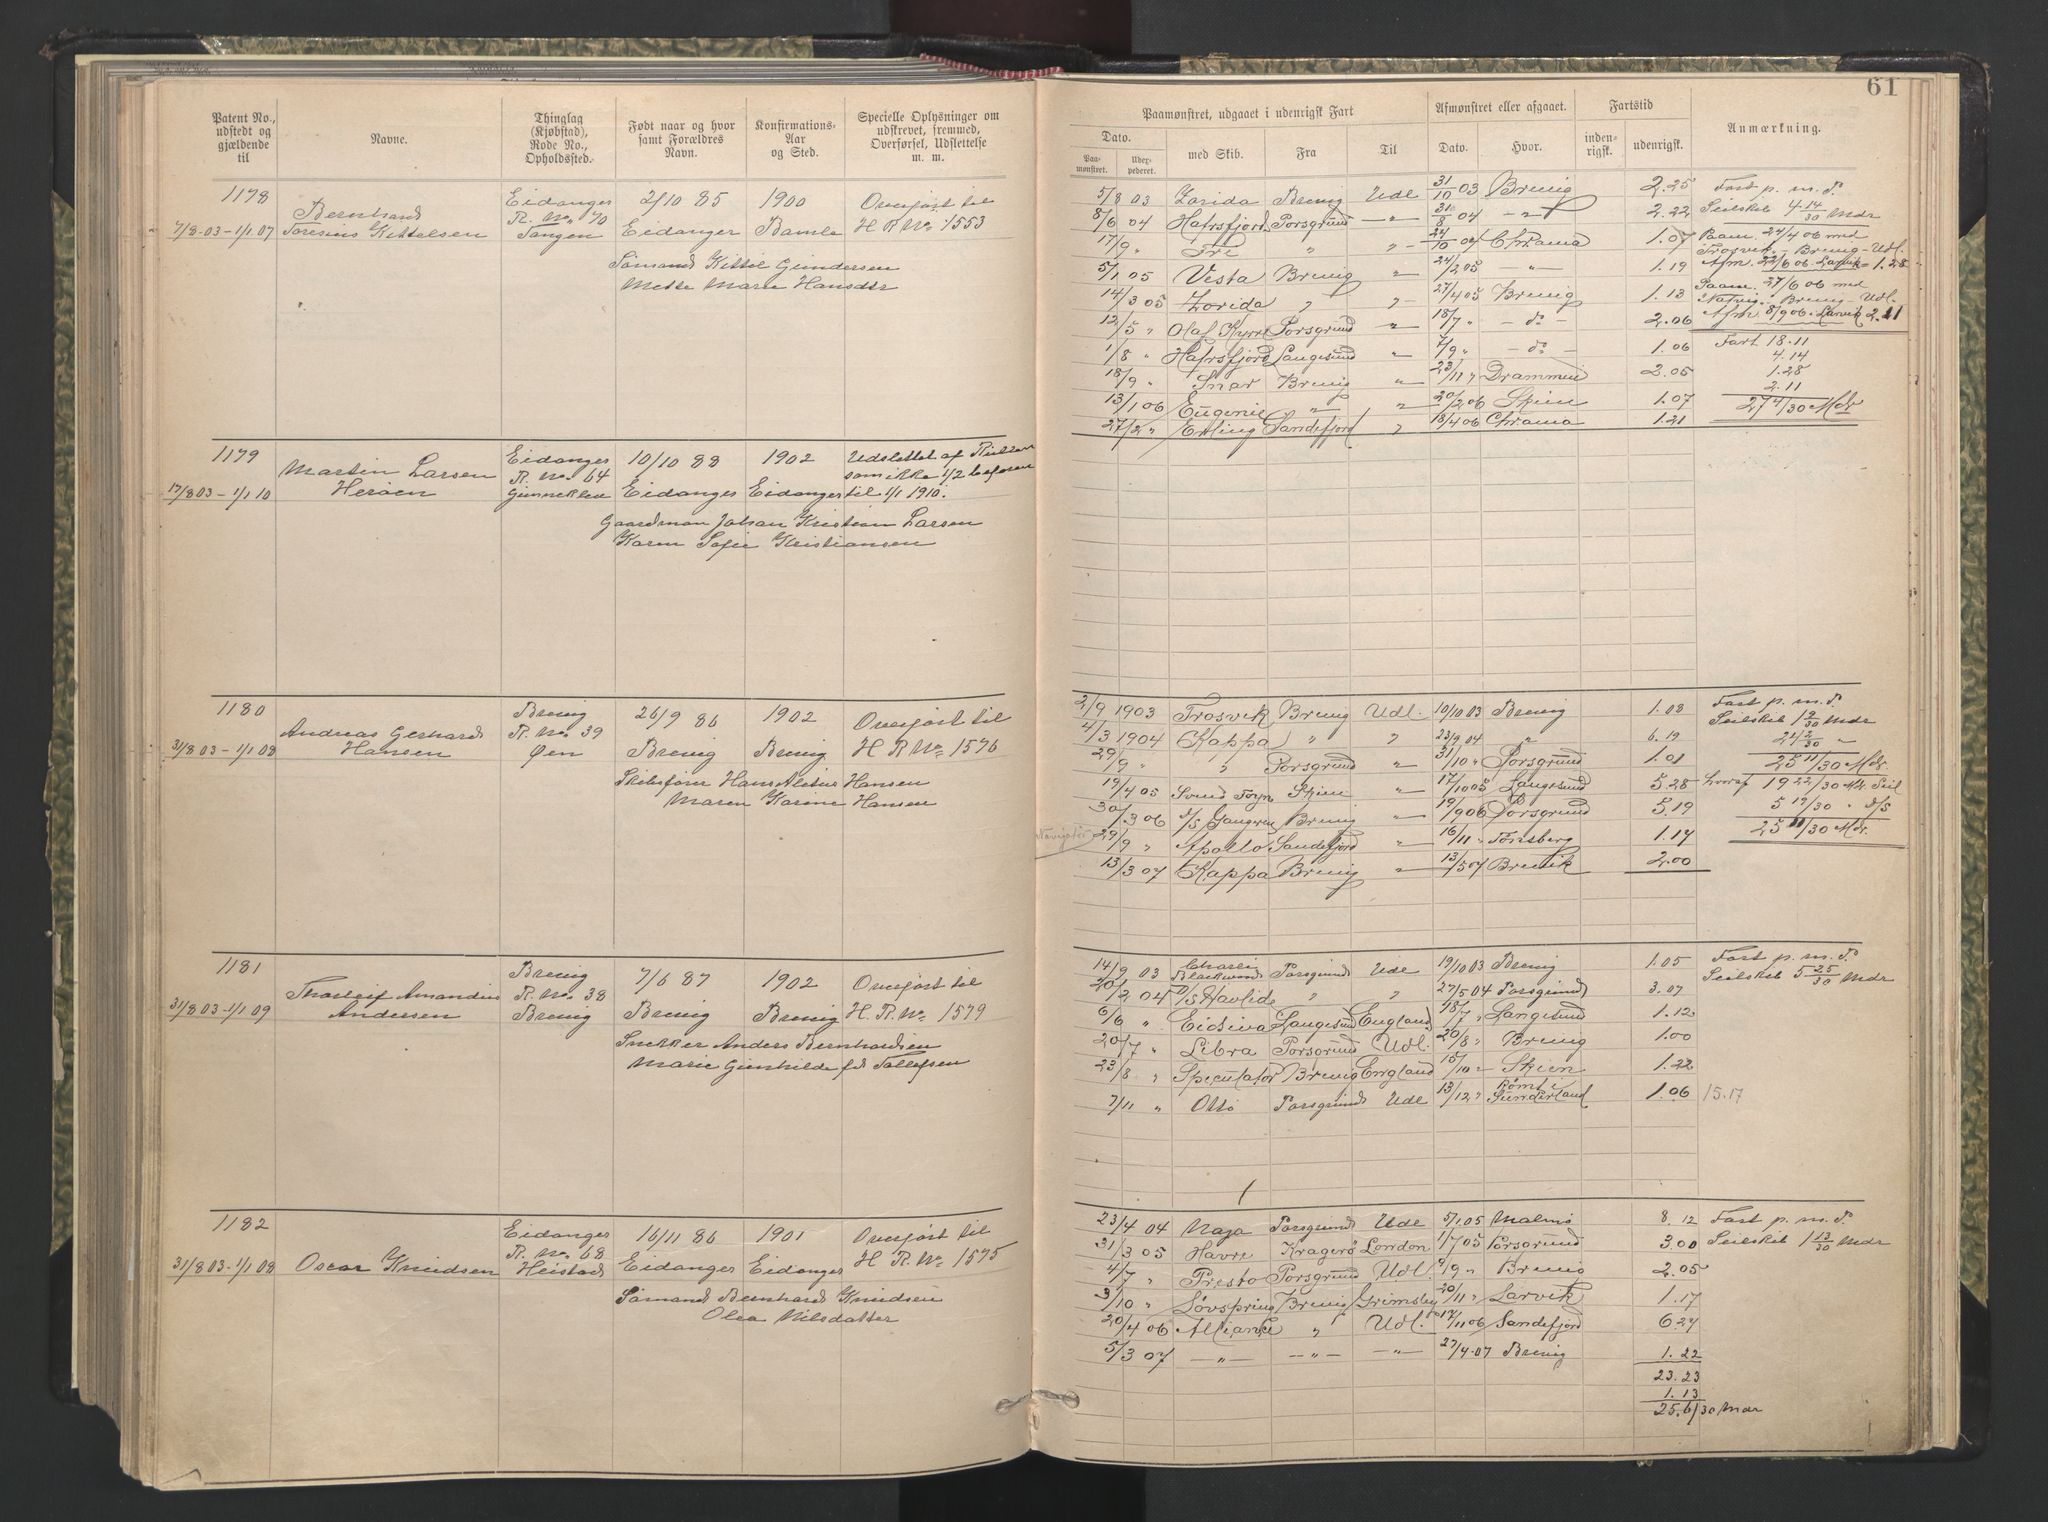 61
Patent No., udstedt og gjældende til
Navne.
Thinglag (Kjøbstad), Rode No., Opholdssted.
Født naar og hvor samt Forældres Navn.
Konfirmations-Aar og Sted.
Specielle Oplysninger om udskrevet, fremmed, Overførsel, Udslettelse m. m.
Paamønstret, udgaaet i udenrigsk Fart
Afmønstret eller afgaaet.
Fartstid
Anmærkning.
Dato.
med Skib.
Fra
Til
Dato.
Hvor.
inden-rigsk.
udenrigsk.
Paa-mønstret.
1178
7/8-03-1/1 07
Bernhard
Soresius Kittelsen
Eidanger
R. No. 70
Tangen
2/10 85
Eidanger
1900
Bamle
Overført til
H R No. 1553
Sømand Kittil Gundersen
Mette Marie Hansdtr
5/8 03 Zorida Brevig Udl 31/10 03 Brevig 2.25 Fart p. m. P.
8/6 04 Hatrsfjord Porsgrund -"- 31/8 04 -"- 2.22 Seilskib 4 14/30 Mdr
17/9 " Fri " " 24/10 04 Chrania 1.07 Paam. 24/4 06 med
Trosvik - Brevig - Udl.
5/1 05 Vesta Brevig " 24/2 05 -"- 1.19 Afm. 22/6 06 Larvik = 1.28
14/3 05 Zorida " " 27/4 05 Brevig 1.13 Paam. 27/6 06 med
Brevig - Udl.
12/5 " Olaf Kyrre Porsgrund " 18/7 " -do- 2.06 Afm 8/9 06. Larvik 2.11
1/8 " Hatrsfjord Langesund " 7/9 " -do- 1.06 Fart 18.11
4.14
18/9 " Snar Brevig " 23/11 " Drammen 2.05 1.28
2.11
13/1 06 Eugenie -"- " 20/2 06 Skien 1.07 27 4/30 Mdr
27/2 " Erling Sandefjord " 18/4 06 Chrania 1.21
1179
17/8 03-1/1 10
Martin Larsen
Herøen
Eidanger
R. No. 64
Gunneklev
10/10 88
Eidanger
1902
Eidanger
Udslettet af Rullen
som ikke 1/2 befaren
til 1/1 1910.
Gaardman Johan Kristian Larsen
Karen Sofie Kristiansen
1180
31/8 03-1/1 08
Andreas Gerhard
Hansen
Brevig
R. No. 39
Øen
26/9 86
Brevig
1902
Brevig
Overført til
H R No. 1576
Skibsfører Hans Hansen
Maren Karine Hansen
2/9 1903 Trosvik Brevig Udl. 10/10 03 Brevig 1.08 Fart p. m. P.
Seilskib 1 9/30 Mdr
4/3 1904 Kappa " " 23/9 04 " 6.19 24 2/30 "
29/9 " " Porsgrund " 31/10 " Porsgrund 1.01 25 11/30 Mdr.
19/4 05 Svend Foyn Skien " 17/10 05 Langesund 5.28 hvoraf 19 22/30 Mdr Seil
30/3 06 D/S Brevig " 19/9 06 Porsgrund 5.19 5 19/30 " D/S
29/9 " Apollo Sandefjord " 16/11 " Tønsberg 1.17 25 11/30 Mdr.
13/3 07 Kappa Brevig " 13/5 07 Brevik 2.00
1181
31/8 03-1/1 09
Thorleif Amandus
Andersen
Brevig
R. No. 38
Brevig
7/6 87
Brevig
1902
Brevig
Overført til
H. R. No. 1579
Snekker Anders Bernhardsen
Marie Gunhilde fd Tollefsen
14/9 03 Charlie Porsgrund Udl 19/10 03 Brevig 1.05 Fart p. m. P.
20/2 04 D/S Havlide " " 27/5 04 Porsgrund 3.07 Seilskib 5 25/30 Mdr
6/6 " Eidsiva Langesund England 18/7 " Langesund 1.12
20/7 " Libra Porsgrund Udl. 20/8 " Brevig 1.00
23/8 " Speculator Brevig England 15/10 " Skien 1.22
7/11 " Otto Porsgrund Udl 13/12 " Rømt i Sunderland 1.06 15.17
1182
31/8 03-1/1 08
Oscar Knudsen
Eidanger
R. No. 68
Heistad
16/11 86
Eidanger
1901
Eidanger
Overført til
H R. No. 1575
Sømand Bernhard Knudsen
Olea Nilsdatter
23/4 04 Naja Porsgrund Udl 5/1 05 Malmø 8.12 Fart p. m. P.
31/3 05 Havre Kragerø London 1/7 05 Porsgrund 3.00 Seilskib 1 13/30 Mdr
4/7 " Presto Porsgrund Udl. 9/9 " Brevig 2.05
3/10 " Løvspring Brevig Grimsby 20/11 " Larvik 1.17
20/4 06 Alliance " Udl. 17/11 06 Sandefjord 6.27
5/3 07 -"- -"- -"- 27/4-07 Brevig 1.22
23.23
1.13
25.6/30 Mdr